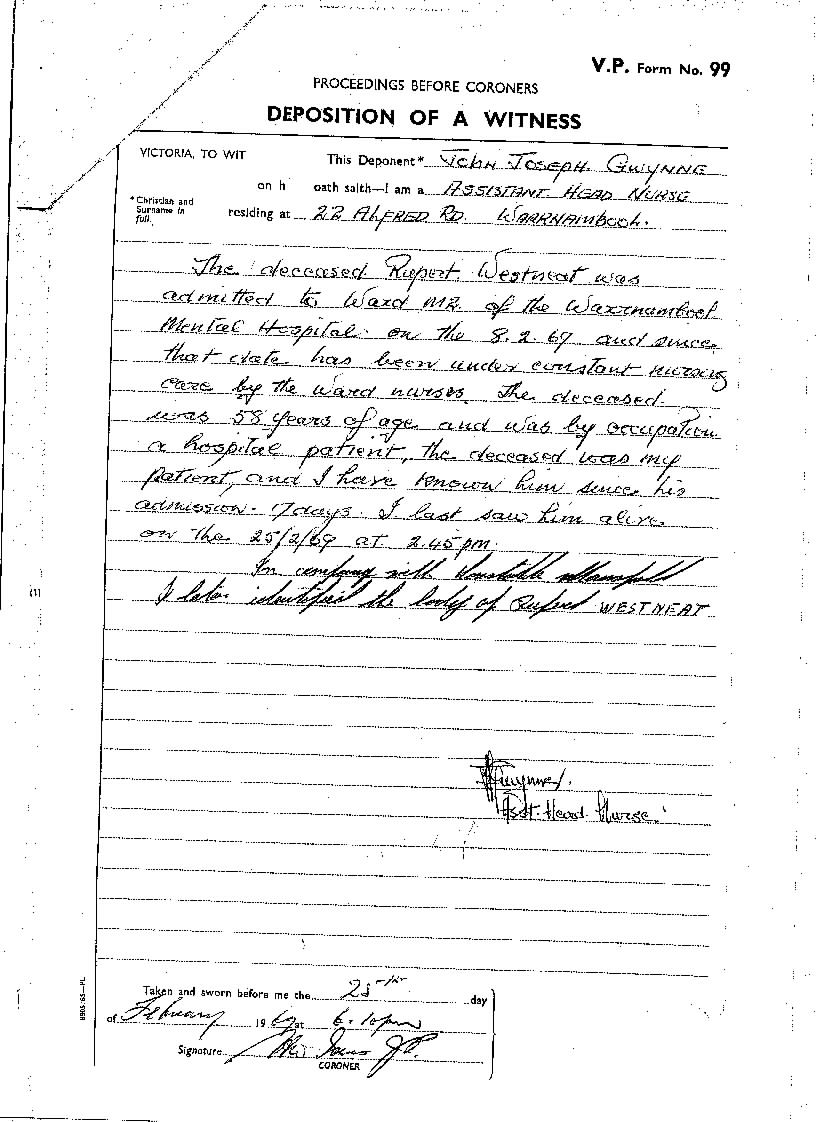 V.P. Form No. 99
PROCEEDINGS BEFORE CORONERS
DEPOSITION OF A WITNESS
VICTORIA, TO WIT
This Deponent* John Joseph Gwynne
on h oath saith—I am a Assistant Head Nurse
*Christian and Surname in full.
residing at 22 Alfred Rd. Warrnambool.
The deceased Rupert Westneat was
admitted to Ward M2. of the Warrnambool
Mental Hospital on the 8.2.69 and since
that date has been under constant nursing
care by the ward nurses. The deceased
was 58 years of age and was by occupation
a hospital patient, the deceased was my
patient, and I have known him since his
admission - 17 days. I last saw him alive
on the 25/2/69 at 2.45 pm.
In company with Constable
I later identified the body of Rupert WESTNEAT
(1)
Gwynne.
Asst. Head Nurse.
Taken and sworn before me the 25th day
of February 1969 at 6.10pm
Signature J.P.
CORONER